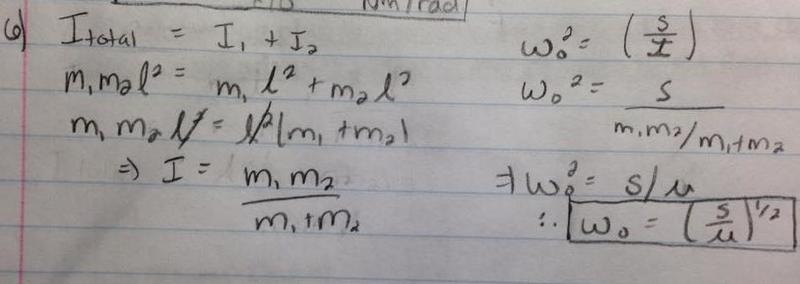 Nm/rad
6) I total = I₁ + I₂
m₁m₂l² = m₁l² + m₂l²
m₁m₂l² = l²(m₁+m₂)
⇒ I = m₁m₂ / m₁+m₂
ω₀² = (s/I)
ω₀² = s / m₁m₂/m₁+m₂
⇒ ω₀² = s/μ
∴ ω₀ = (s/μ)^1/2